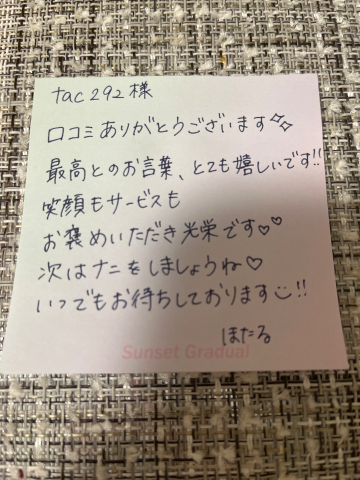 tac292様
口コミありがとうございます✨
最高とのお言葉、とても嬉しいです!!
笑顔もサービスも
お褒めいただき光栄です♡♡
次はナニをしましょうね♡
いつでもお待ちしております☺!!
ほたる
Sunset Gradual